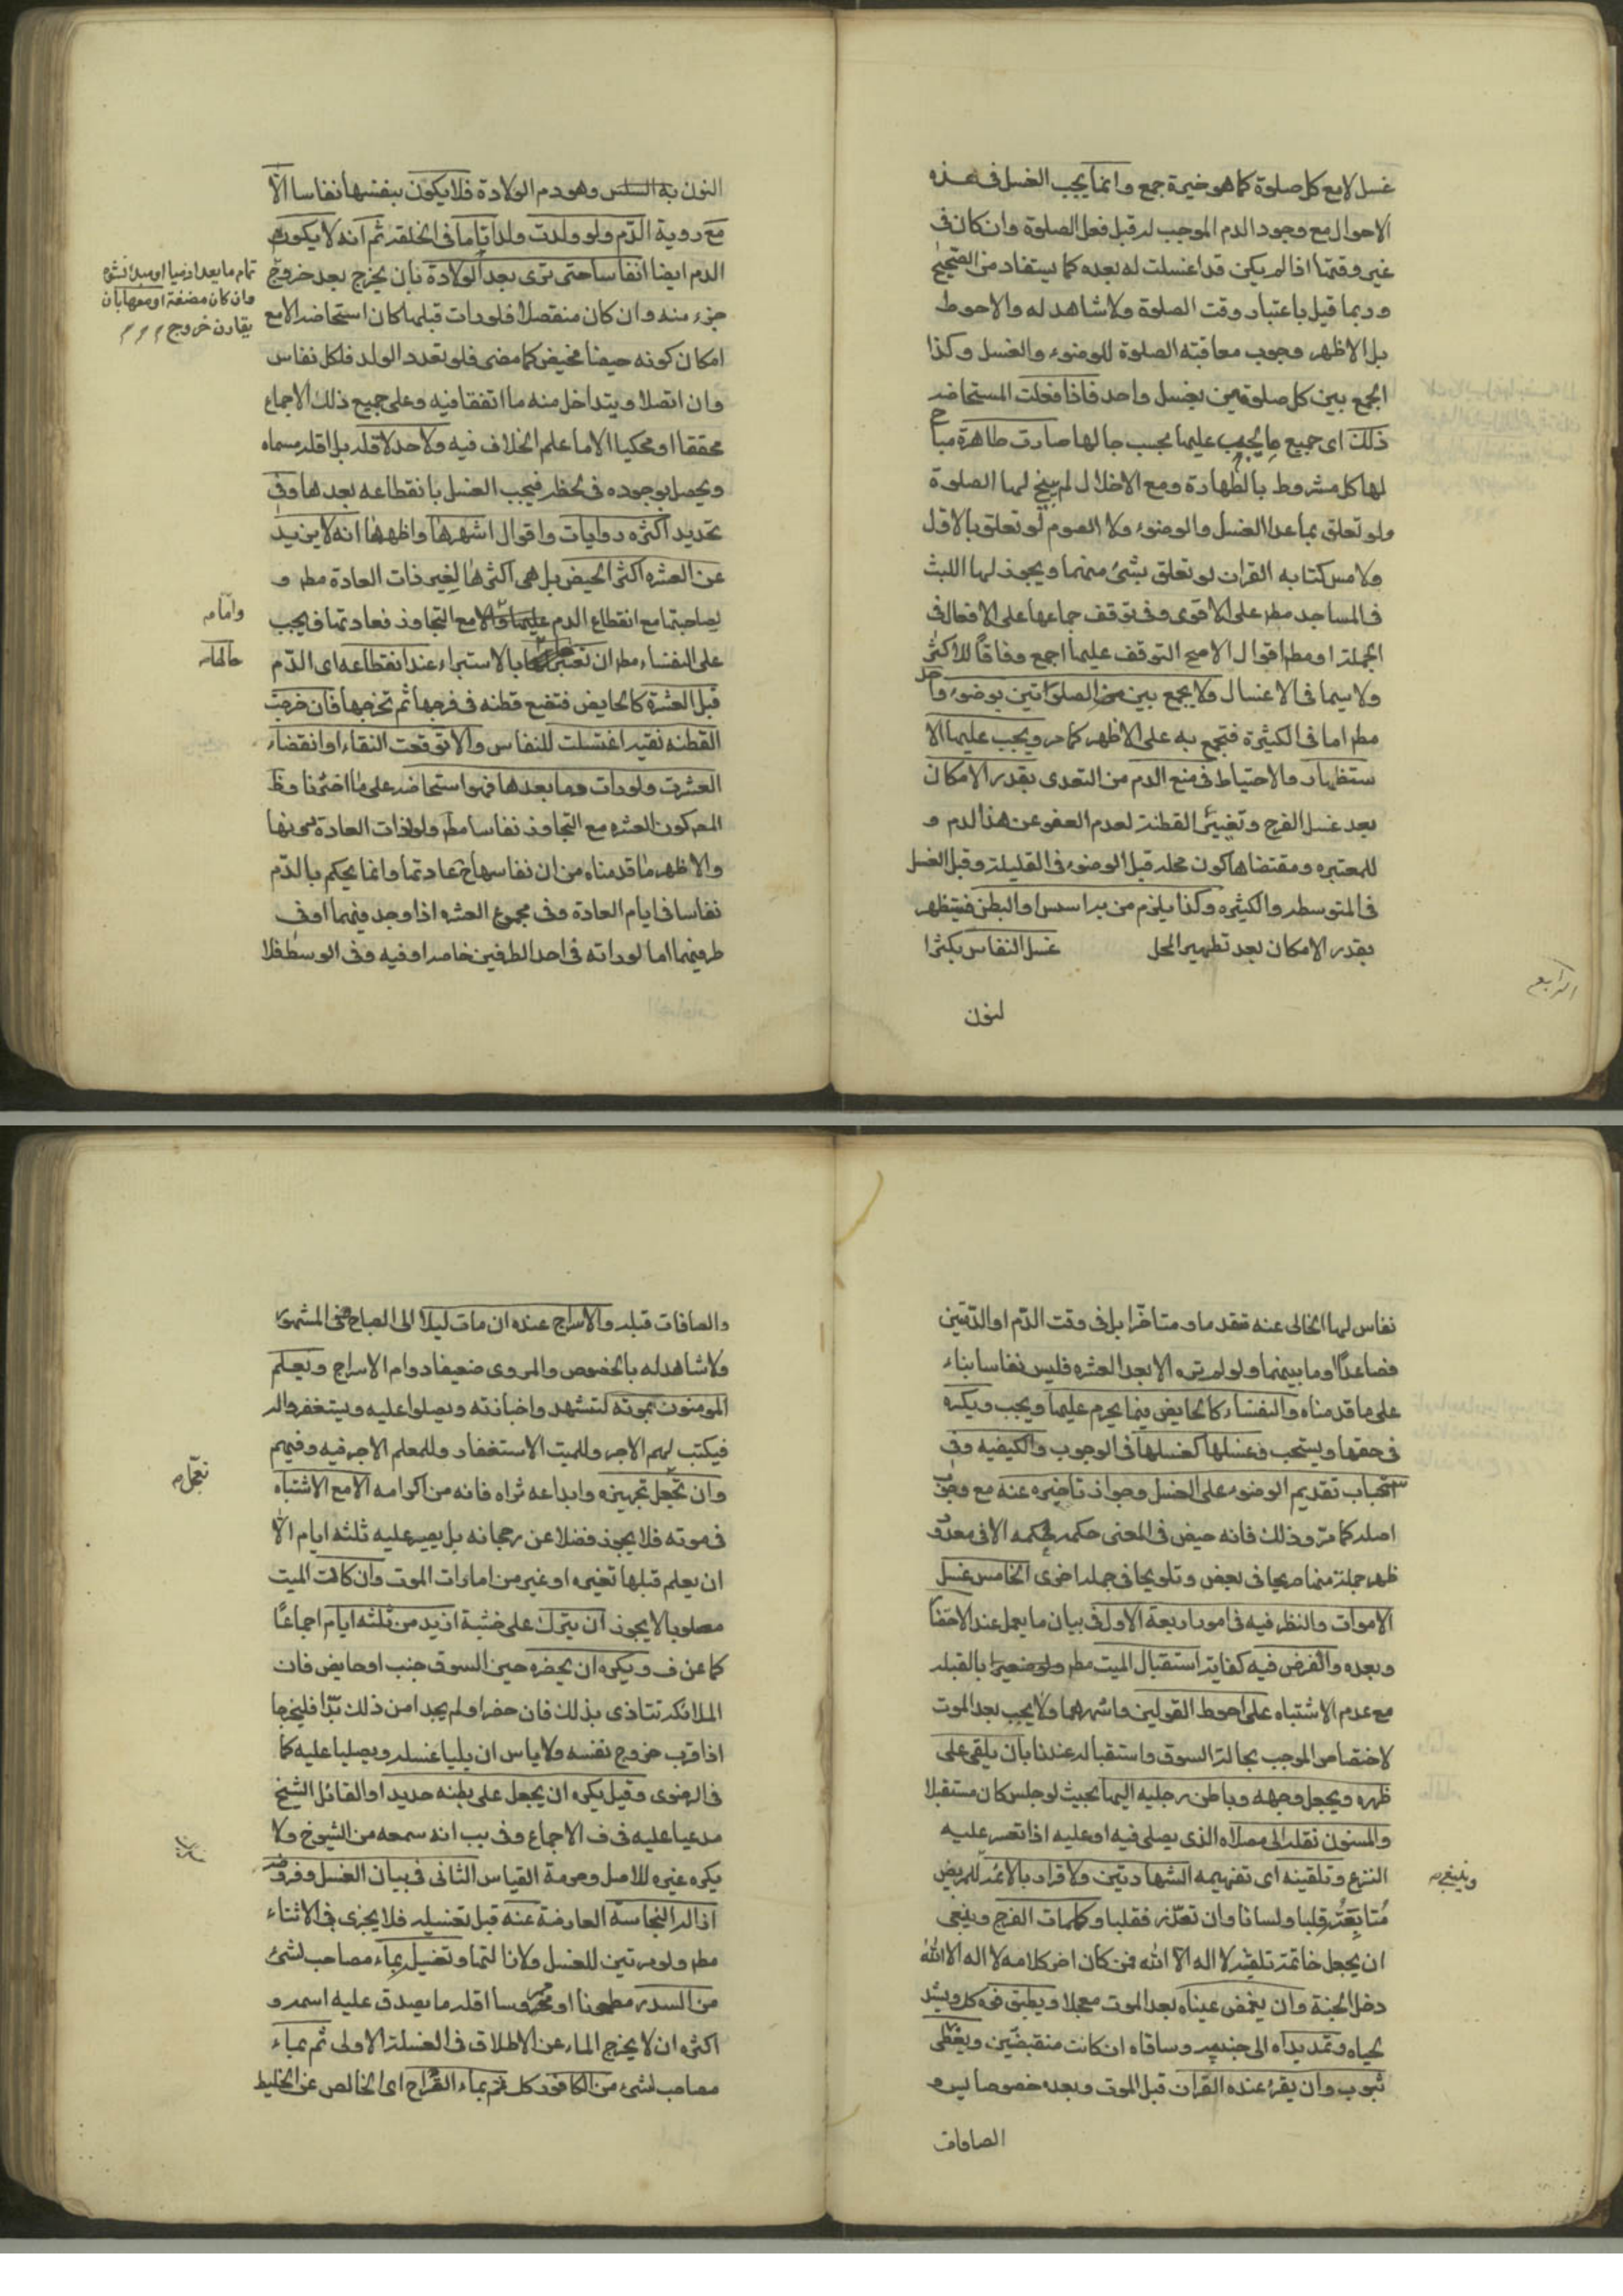 غسل لا مع كل صلوة كما هو خيرة جمع وانما يجب الغسل فى هذه
الاحوال مع وجود الدم الموجب له قبل فعل الصلوة وان كان فى
غير وقتها اذا لم يكن قد اغتسلت له بعده كما يستفاد من الصحيح
وربما قيل باعتبار وقت الصلوة ولا شاهد له والاحوط
بل الاظهر وجوب معاقبة الصلوة للوضوء والغسل وكذا
الجمع بين كل صلوتين بغسل واحد فاذا فعلت المستحاضه
ذلك اى جميع ما يجب عليها بحسب حالها صارت طاهرة مباح
لها كل مشروط بالطهارة ومع الاخلال لم يبح لها الصلوة
ولو تعلق بما عدا الغسل والوضوء ولا الصوم لو تعلق بالاول
ولا مس كتابه القران لو تعلق بشئ منهما ويجوز لها اللبث
فى المساجد مطم على الاقوى وفى توقف جماعها على الافعال فى
الجملة او مطم اقوال الاصح التوقف عليها اجمع وفاقاً للاكثر
ولا سيما فى الاغسال ولا يجمع بين الصلوتين بوضوء واحد
مطم اما فى الكثيرة فتجمع به على الاظهر كما مر ويجب عليها الا
ستظهار والاحتياط فى منع الدم من التعدى بقدر الامكان
بعد غسل الفرج وتغيير القطنة لعدم العفو عن هذا الدم و
للمعتبره ومقتضاها كون محله قبل الوضوء فى القليلة وقبل الغسل
فى المتوسطه والكثيره وكذا يلزم من به السلس او البطن فيستظهر
بقدر الامكان بعد تطهير المحل غسل النفاس بكثر ا
الرابع
لنون
النون به وهو دم الولادة فلا يكون بنفسها نفاسا الا
مع روية الدم ولو ولدت ولدا تاما فى الخلقه ثم انه لا يكون
الدم ايضا نفاسا حتى ترى بعد الولادة بان يخرج بعد خروج
جزء منه وان كان منفصلا فلو رات قبلها كان استحاضه الا مع
امكان كونه حيضا فحيض كما مضى فلو تعدد الولد فلكل نفاس
وان اتصلا ويتداخل منه ما اتفقا فيه وعلى جميع ذلك الاجماع
محققا او محكيا الا ما علم الخلاف فيه ولا حد لاقله بل اقله مسماه
ويحصل بوجوده فى لحظه فيجب الغسل بانقطاعه بعدها وفى
تحديد اكثره روايات واقوال اشهرها واظهرها انه لا يزيد
عن العشره اكثر الحيض بل هى اكثرها لغير ذات العادة مطم و
لصاحبتها مع انقطاع الدم عليها والا مع التجاوز فعادتها فيجب
على النفساء مطم ان تعتبر بالاستبراء عند انقطاعه اى الدم
قبل العشرة كالحايض فتضع قطنه فى فرجها ثم تخرجها فان خرجت
القطنه نقيه اغتسلت للنفاس والا توقعت النقاء او انقضاء
العشرة ولو رات وما بعدها فهو استحاضه على ما اخترنا وظ
المص كون العشره مع التجاوز نفاسا مطم ولو لذات العادة دونها
والاظهر ما قدمناه من ان نفاسها ح عادتها وانما يحكم بالدم
نفاسا فى ايام العادة وفى مجموع العشره اذا وجد فيهما او فى
طرفيهما اما لو راته فى احد الطرفين خاصه او فيه وفى الوسط فلا
وان كان مضغة او معها بان
يقارن خروج
واما
حالها
نفاس لها الخالى عنه متقدما ومتاخرا بل فى وقت الدم او الدمين
فصاعدا وما بينهما ولو لم تره الا بعد العشره فليس نفاسا بناء
على ما قدمناه والنفساء كالحايض فيما يحرم عليها ويجب ويكره
فى حقها ويستحب وغسلها كغسلها فى الوجوب والكيفيه وفى
استحباب تقديم الوضوء على الغسل وجواز تاخيره عنه مع وجوب
اصله كما مر وذلك فانه حيض فى المعنى حكمه حكمه الا فى معدود
ظهر جملة منها صريحا فى بعض وتلويحا فى جمله اخرى الخامس غسل
الاموات والنظر فيه فى امور اربعة الاول فى بيان ما يعمل عند الاحتضار
وبعده والفرض فيه كفاية استقبال الميت مطم ولو صغيرا بالقبله
مع عدم الاشتباه على احوط القولين واشهرهما ولا يجب بعد الموت
لاختصاص الموجب بحالة السوق واستقباله عندنا بان يلقى على
ظهره ويجعل وجهه وباطن رجليه اليها بحيث لو جلس كان مستقبلا
والمسنون نقله الى مصلاه الذى يصلى فيه او عليه اذا تعسر عليه
النزع وتلقينه اى تفهيمه الشهادتين والاقرار بالائمة للمريض
متابعته قلبا ولسانا وان تعذر فقلبا وكلمات الفرج وينبغى
ان يجعل خاتمة تلقينه لا اله الا الله فمن كان اخر كلامه لا اله الا الله
دخل الجنة وان يغمض عيناه بعد الموت معجلا ويطبق فوه كل ويشد
لحياه وتمد يداه الى جنبيه وساقاه ان كانت منقبضتين ويغطى
بثوب وان يقرء عنده القران قبل الموت وبعده خصوصا يس و
وينبغى
الصافات
والصافات قبله والاسراج عنده ان مات ليلا الى الصباح فى المشهور
ولا شاهد له بالخصوص والمروى ضعيفا دوام الاسراج ويعلم
المومنون بموته لتشهد واجنازته ويصلوا عليه ويستغفروا له
فيكتب لهم الاجر وللميت الاستغفار وللمعلم الاجر فيه وفيهم
وان تعجل تجهيزه وايداعه ثراه فانه من اكرامه الا مع الاشتباه
فى موته فلا يجوز فضلا عن رجحانه بل يصبر عليه ثلثه ايام الا
ان يعلم قبلها تغيره او غيره من امارات الموت وان كانت الميت
مصلوبا لا يجوز ان يترك على خشبة ازيد من ثلثه ايام اجماعا
كما عن ف ويكره ان يحضره حين السوق جنب او حايض فان
الملائكه تتاذى بذلك فان حضرا ولم يجدا من ذلك بدا فليخرجا
اذا قرب خروج نفسه ولا باس ان يليا غسله ويصليا عليه كما
فى الرضوى وقيل يكره ان يجعل على بطنه حديد او القائل الشيخ
مدعيا عليه فى ف الاجماع وفى يب انه سمعه من الشيوخ ولا
يكره غيره للاصل وحرمة القياس الثانى فى بيان الغسل وفروضه
ازالة النجاسة العارضة عنه قبل تغسيله فلا يجزى فى الاثناء
مطم ولو مرتين للغسل ولازالتها وتغسيله بماء مصاحب لشئ
من السدر مطحونا او ممروسا اقله ما يصدق عليه اسمه و
اكثره ان لا يخرج الماء عن الاطلاق فى الغسلة الاولى ثم بماء
مصاحب لشئ من الكافور كل ثم بماء القراح اى الخالص عن الخليط